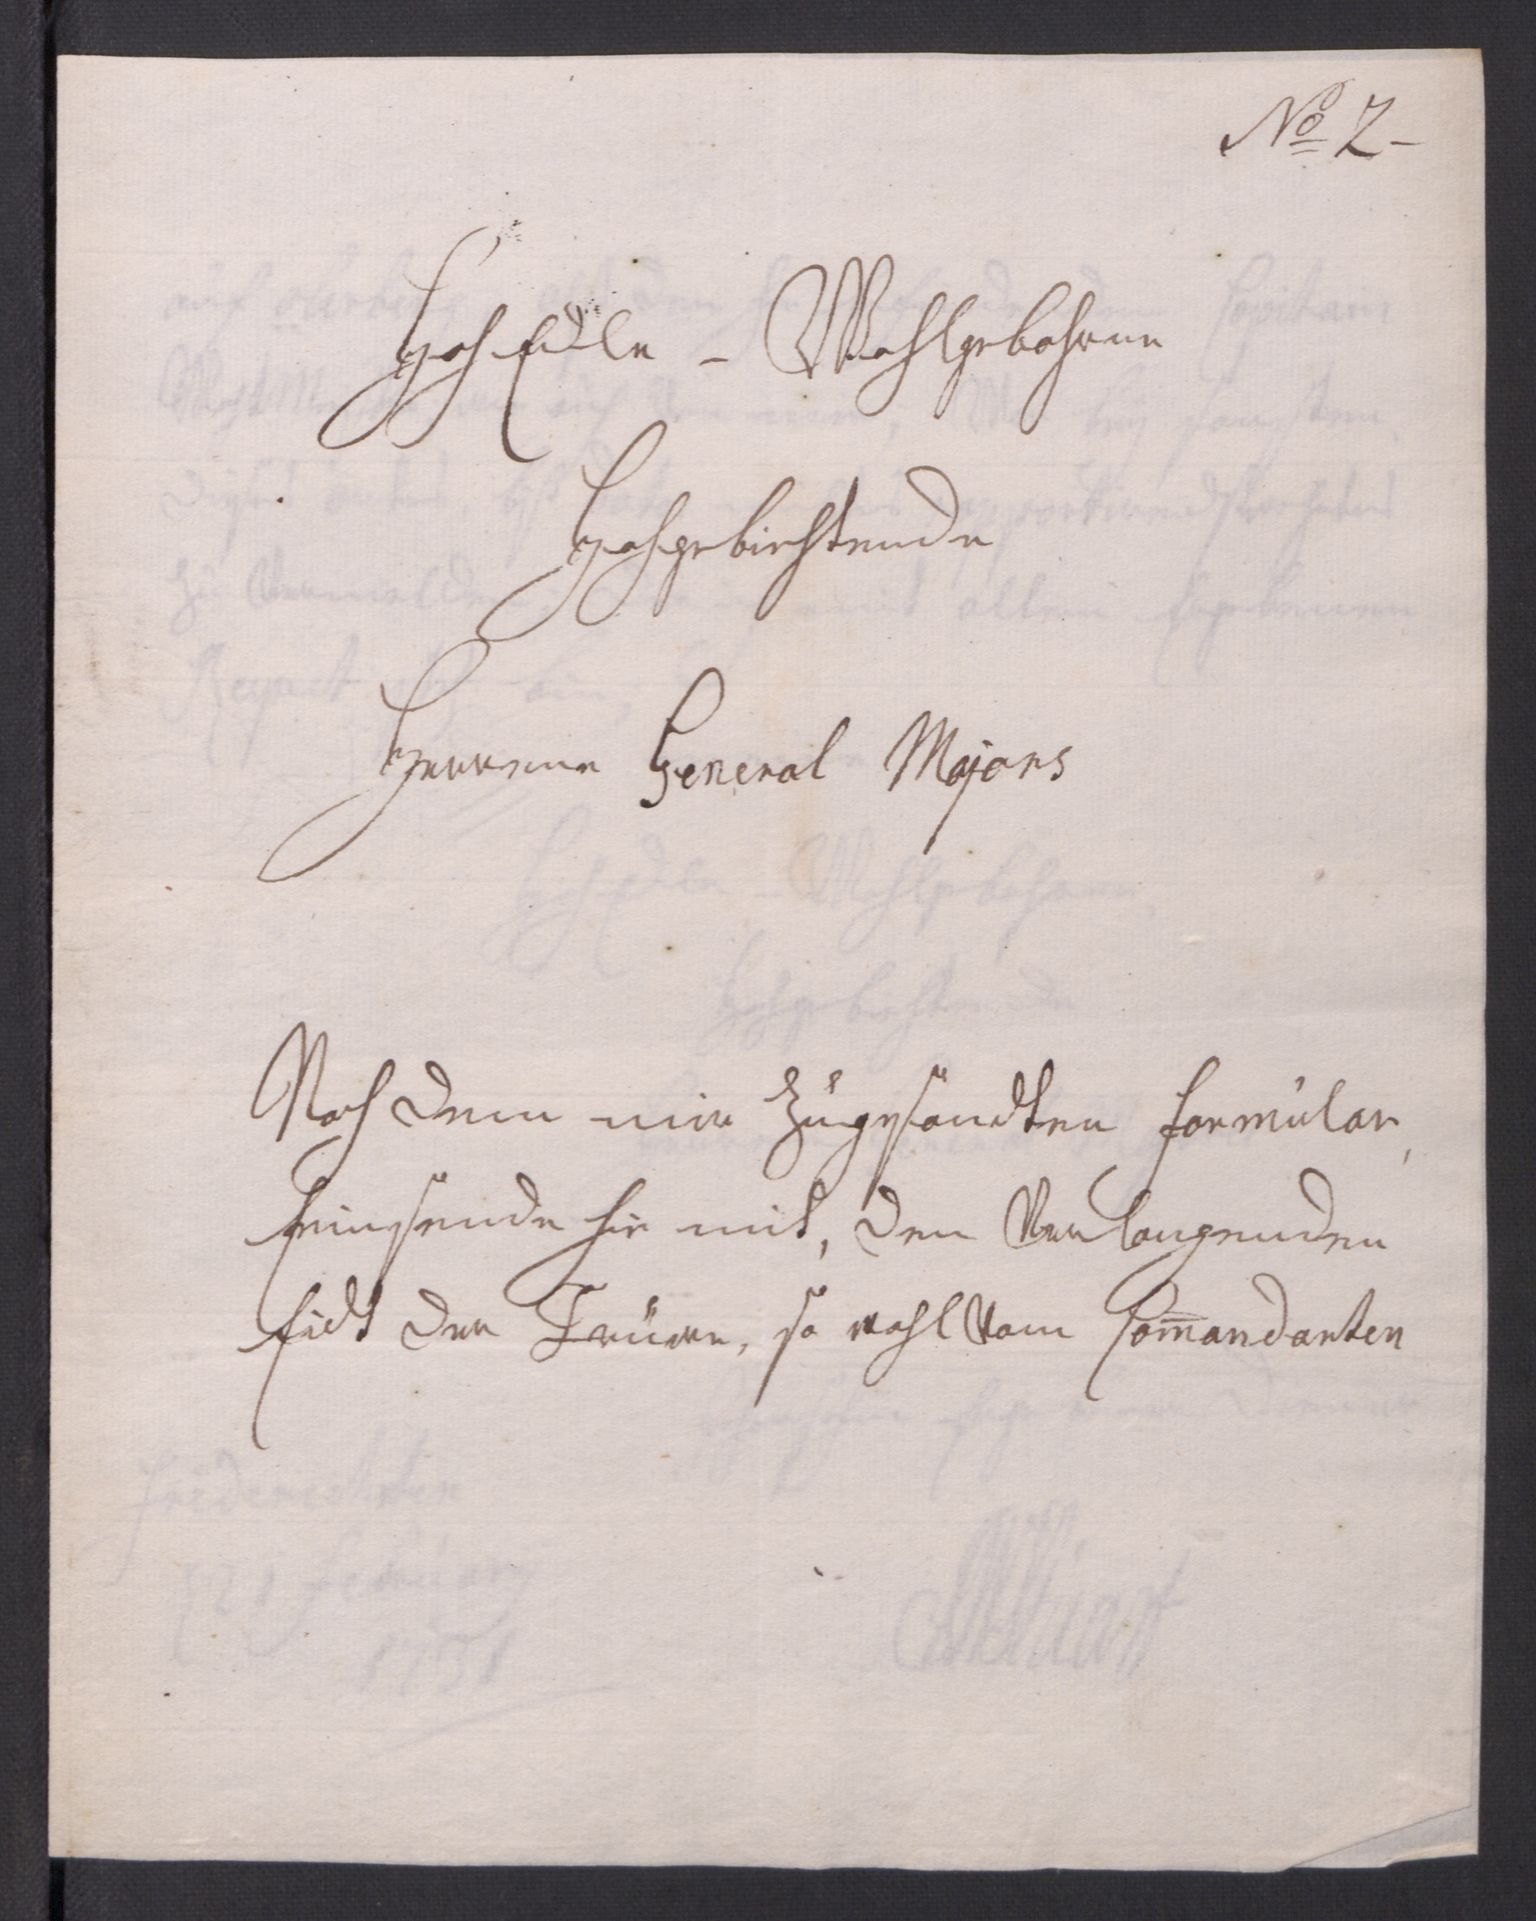 No 2-
HochEdle - Wohlgebohrne
Hochgebiehtende
Herrenn General Majors
Nach dem mir Zugesandten formular,
Einsende hie mit, den Verlangenden
Eidt der Träwe, so wohl vom Com̄andanten